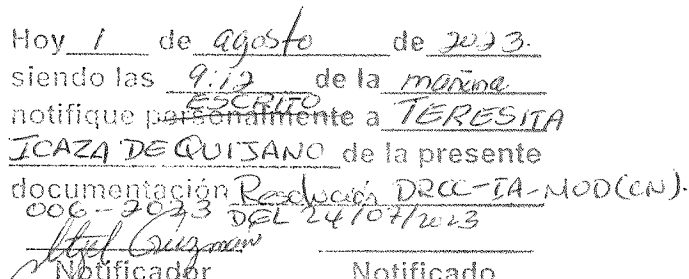 Hoy 1 de agosto de 2023.
siendo las 9:12 de la mañana
ESCRITO
notifique personalmente a TERESITA
ICAZA DE QUIJANO de la presente
documentación Resolución DRCC-IA-MOD(CN).
006-2023 DEL 24/07/2023
Guzmán
Notificador Notificado